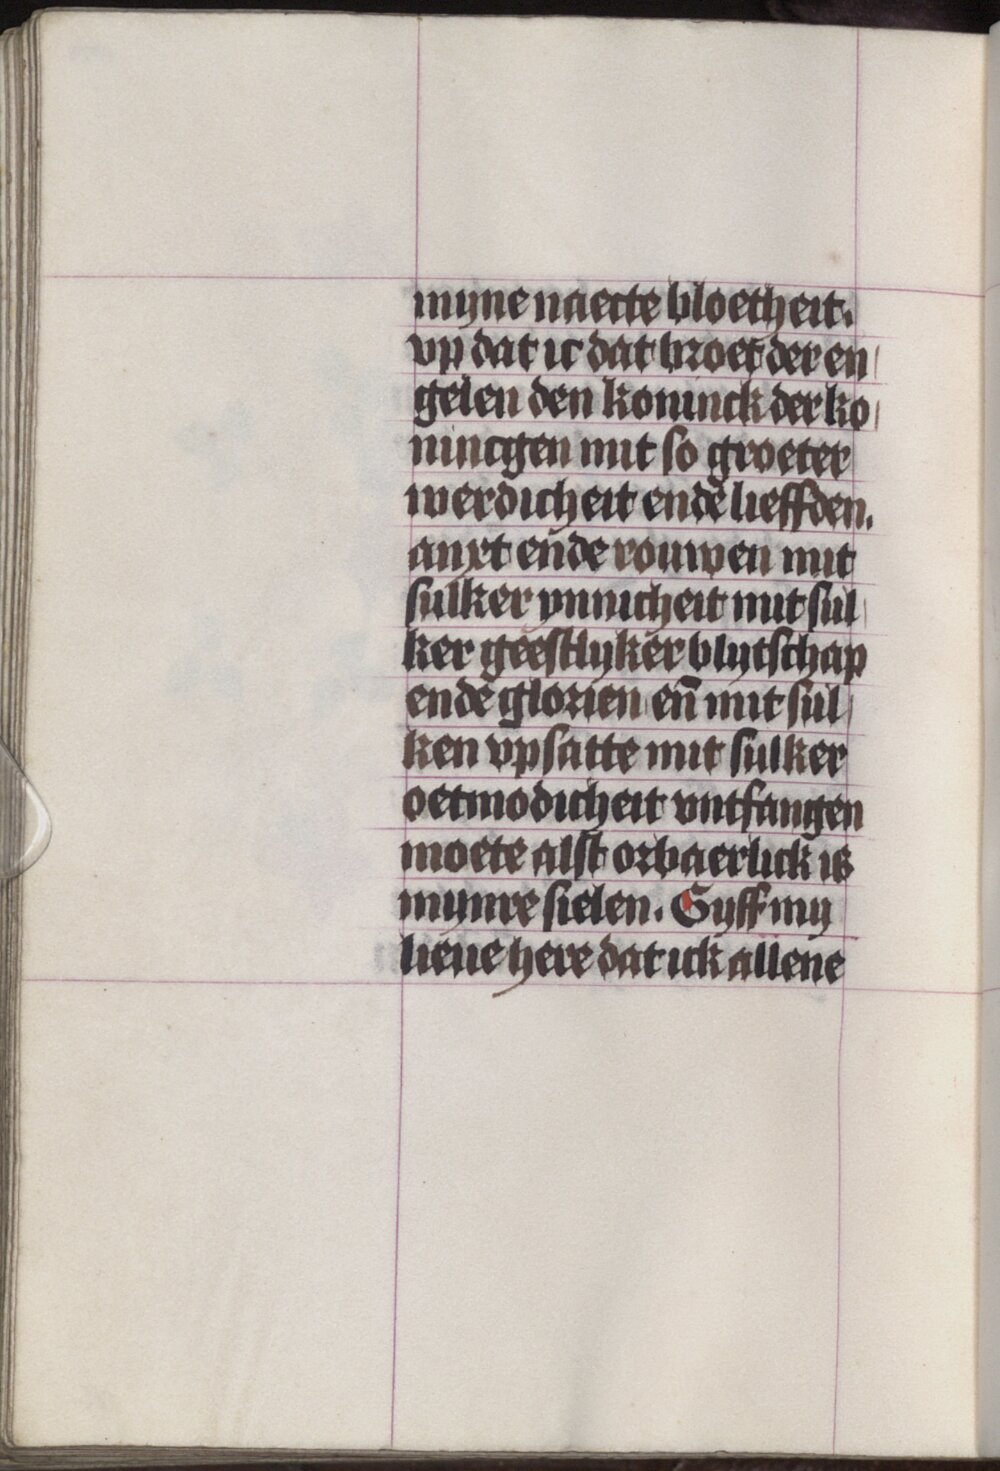 myne naecte bloetheit.
vp dat ic dat broet der en
gelen den koninck der ko
nincgen mit so groeter
werdicheit ende lieffden.
anxt ende rouwen mit
sulker ynnicheit mit sul
ker geestlyker blytschap
ende glorien en̄ mit sul
ken vpsatte mit sulker
oetmodicheit vntfangen
moete alst orbaerlick is
mynre sielen. Gyff my
lieue here dat ick allene